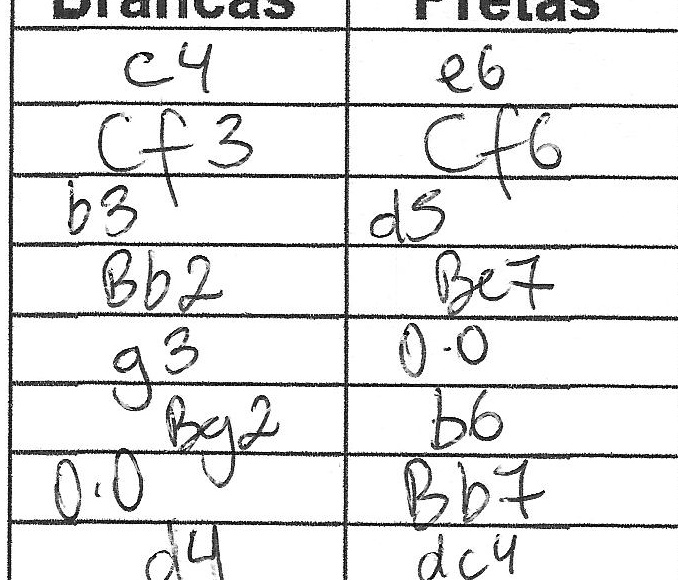 Brancas Pretas
c4 e6
Cf3 Cf6
b3 d5
Bb2 Be7
g3 0-0
Bg2 b6
0.0 Bb7
d4 dc4